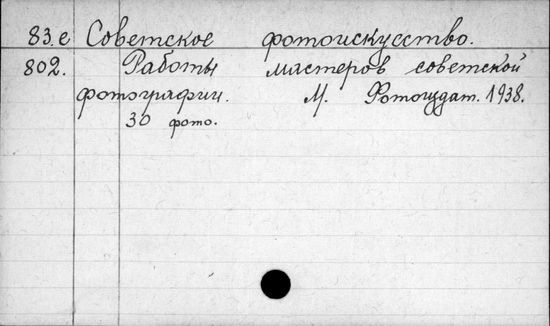 83.е Советское фотоискусство.
802. Работы мастеров советской
фотографии. М. Фотоиздат. 1938.
30 фото.